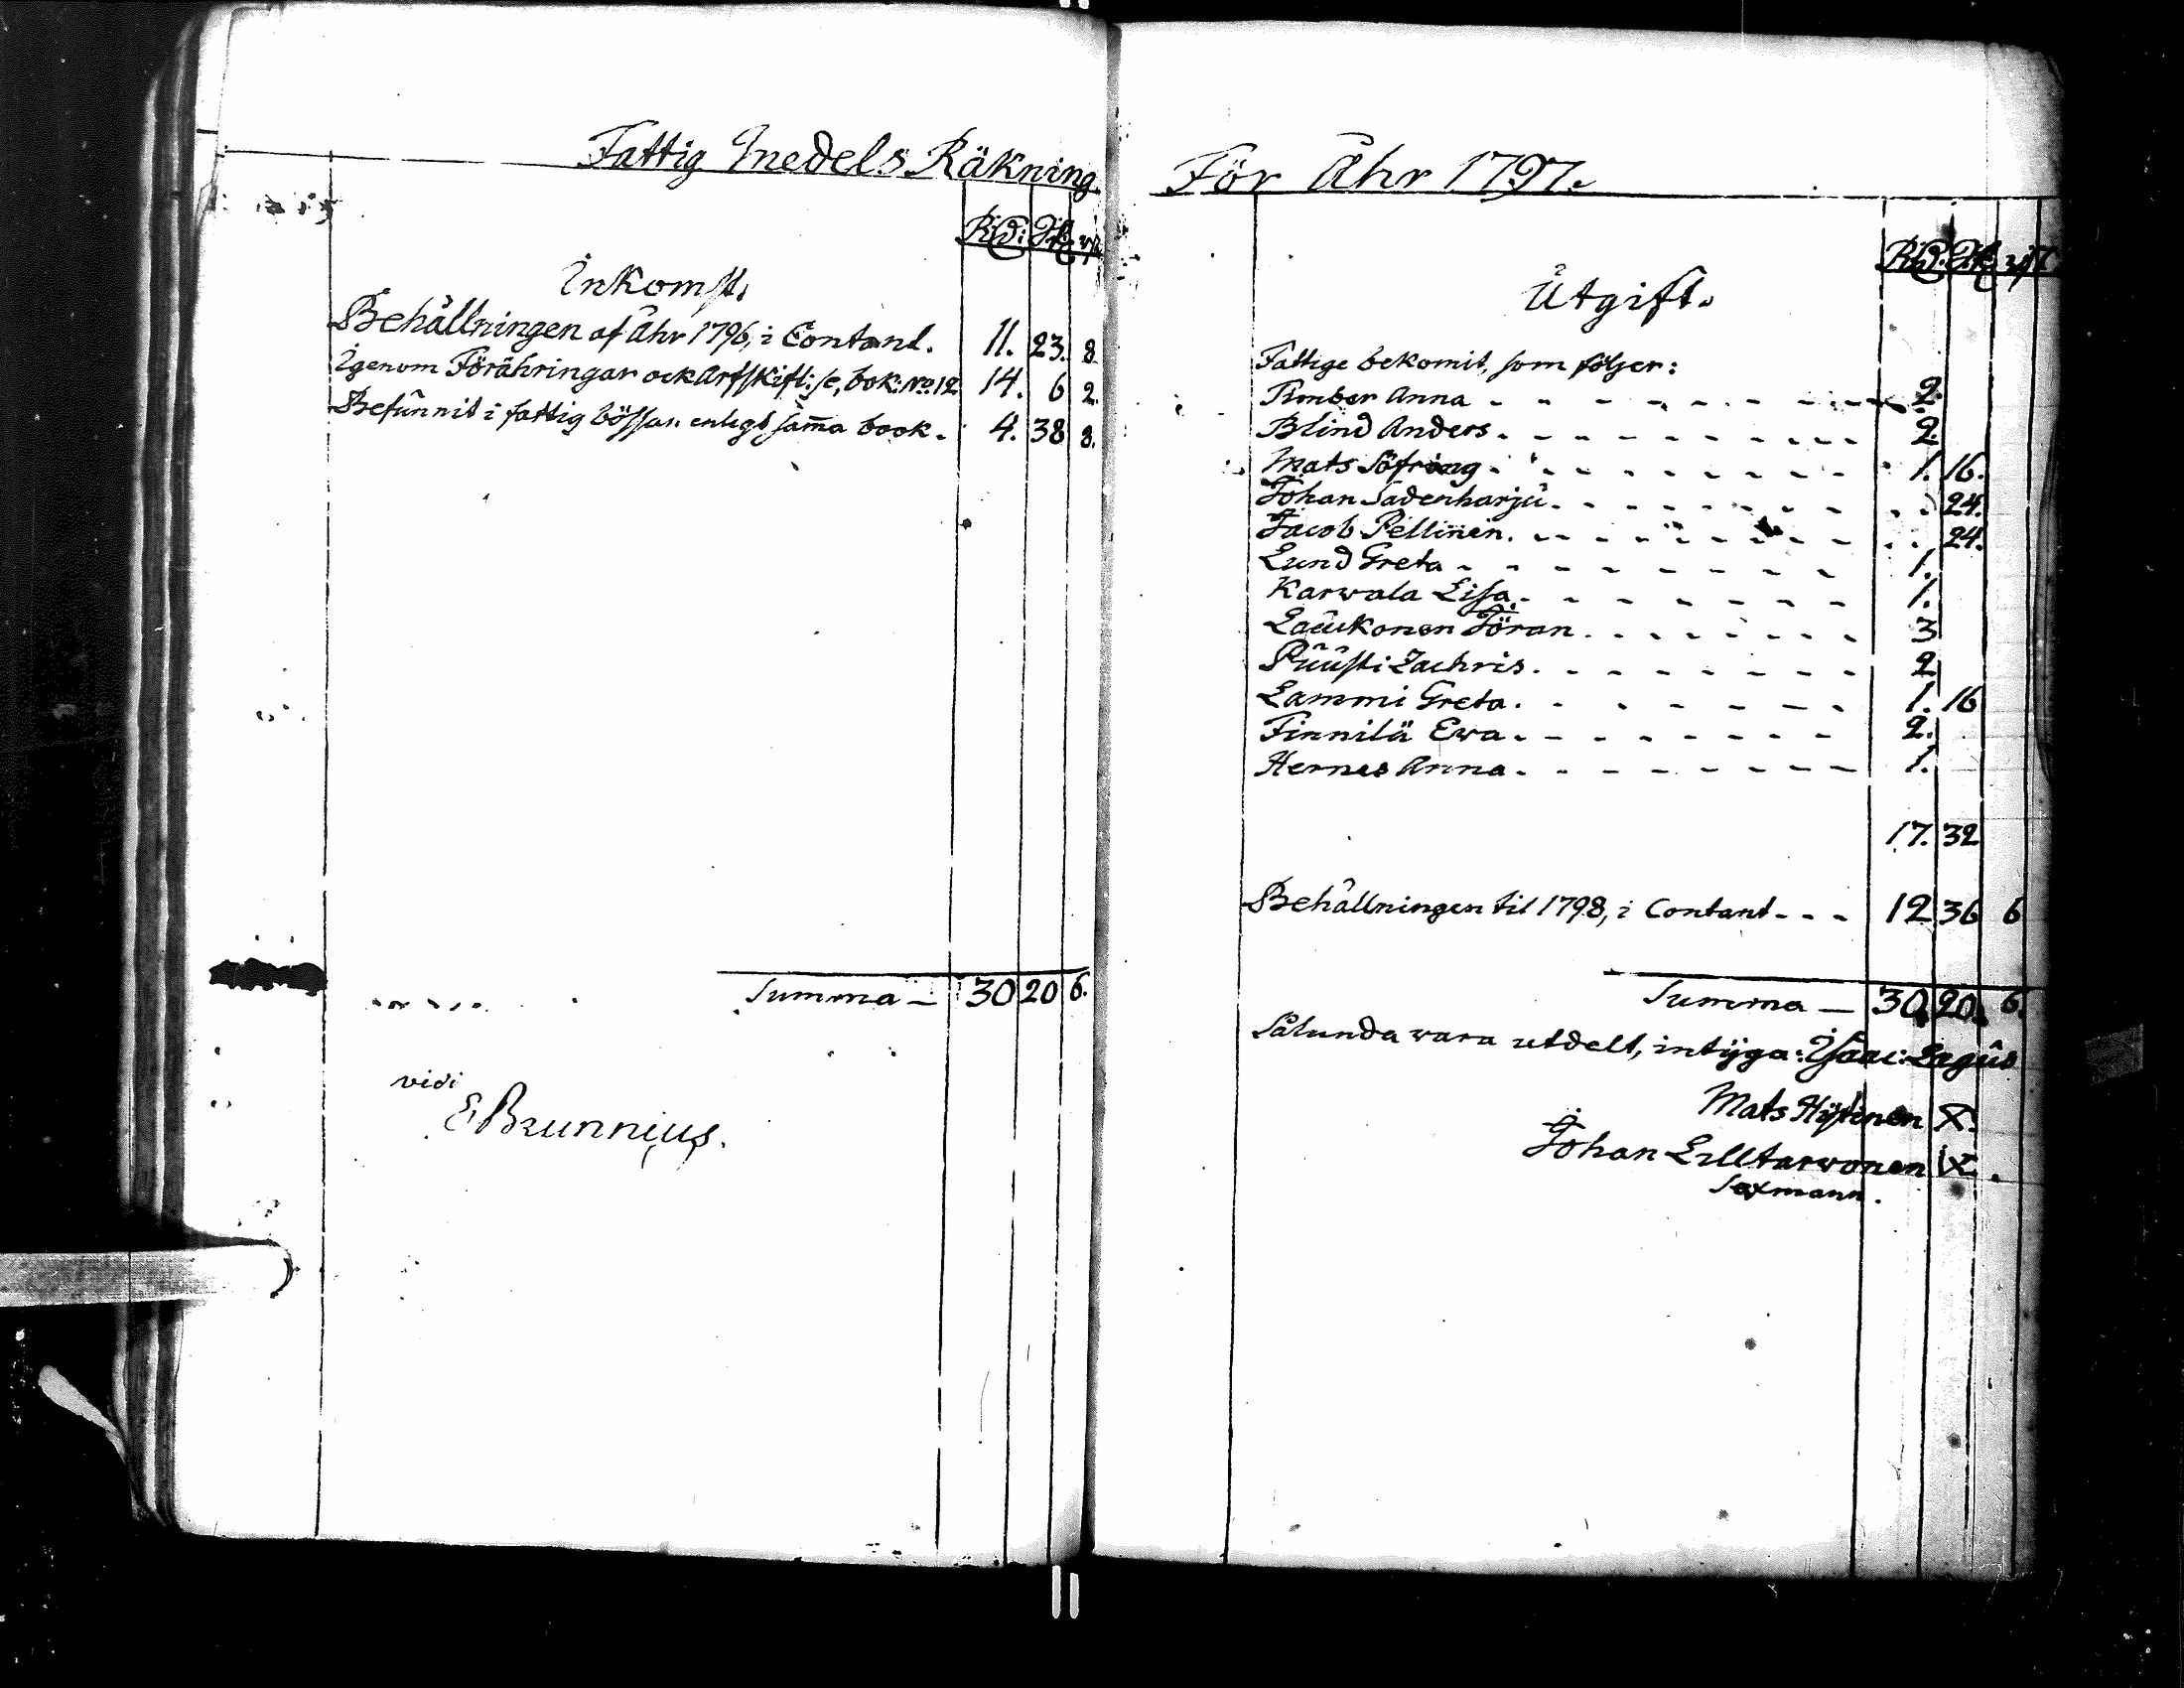 Fattig Medels Räkning
R:d: sk: rst
Inkomst.
Behållningen af Åhr 1796, i Contant. 11. 23. 8.
Igenom Förähringar ock Arfskift: se, bok: No: 12 14. 6 2.
Befunnit i fattig bössan enligt sam̅a book. 4. 38 8.
Summa — 30 20 6.
vidi
E Brunnius.
För Åhr 1797.
R:d: sk: rst
Utgift.
Fattige bekomit, som följer:
Timber Anna - - - - - - - - - 2.
Blind Anders. - - - - - - - - - 2.
Mats Söfring. - - - - - - - - 1. 16.
Johan Sadenharju. - - - - - - - . . 24.
Jacob Pellinen. - - - - - - - - . . 24.
Lund Greta - - - - - - - - 1.
Karwala Lisa. - - - - - - - 1.
Lauckonen Jöran. - - - - - - - 3
Puusti Zachris. - - - - - - - 2
Lammi Greta. - - - - - - - 1. 16
Finnilä Ewa. - - - - - - - 2.
Hernes Anna. - - - - - - - 1.
17. 32
Behållningen til 1798, i Contant - - - 12 36 6
Summa — 30. 20. 6.
Sålunda wara utdelt, intÿga: Isaac: Lagus
Mats Hÿtinen X.
Johan Lilltarwonen X.
Sexmann.